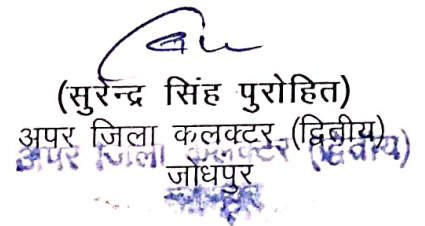 (सुरेन्द्र सिंह पुरोहित)
अपर जिला कलक्टर (द्वितीय)
अपर जिला कलक्टर (द्वितीय)
जोधपुर